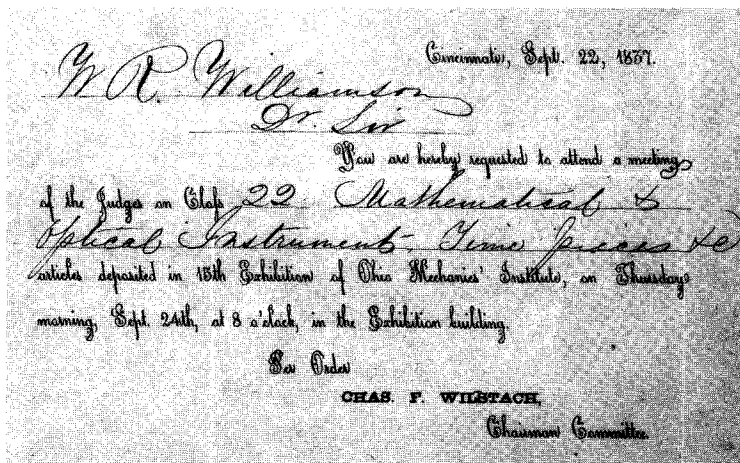 Cincinnati, Sept. 22, 1857.
W. R. Williamson
Dr. Sir
You are hereby requested to attend a meeting
of the Judges on Class 22 Mathematical &
Optical Instruments, Time pieces &c
articles deposited in 15th Exhibition of Ohio Mechanics' Institute, on Thursday
morning, Sept. 24th, at 8 o'clock, in the Exhibition building.
Per Order
CHAS. F. WILSTACH,
Chairman Committee.